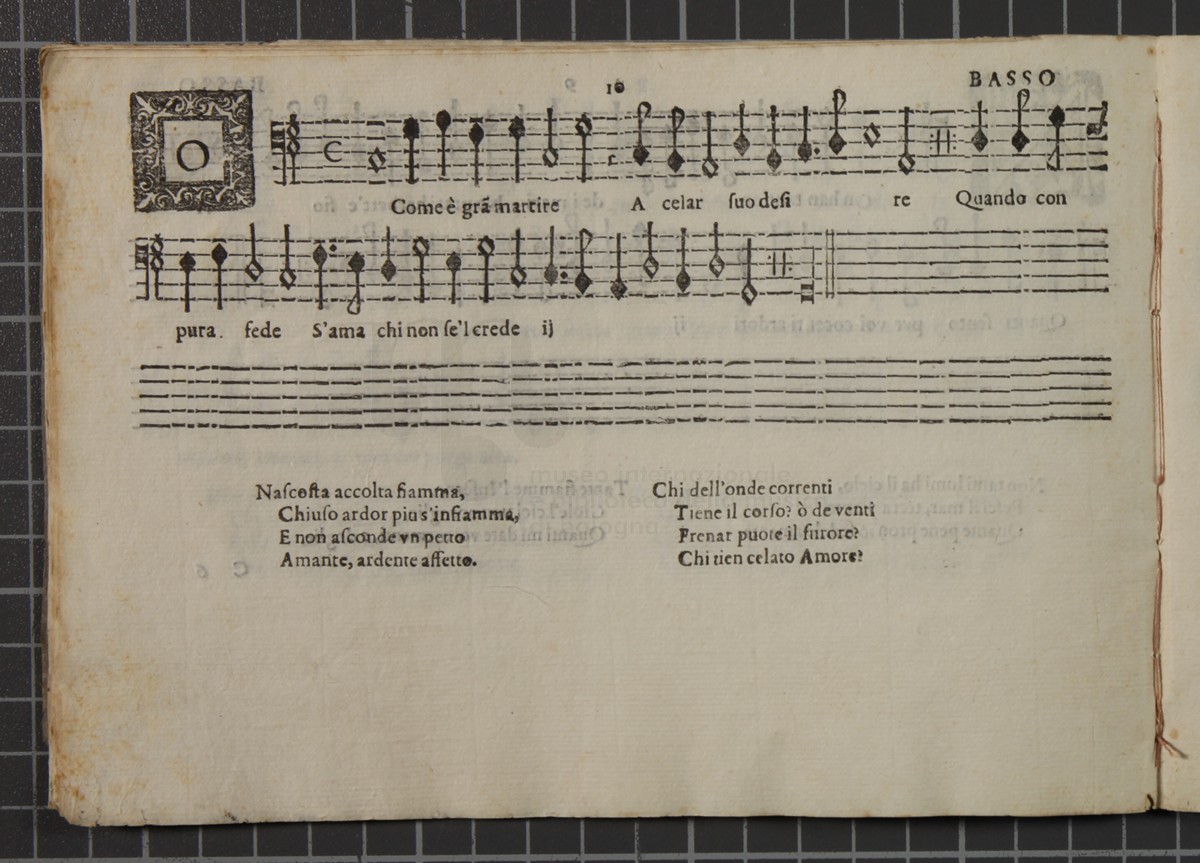 10
BASSO
O
Come è grã martire A celar suo desi re Quando con
pura. fede S'ama chi non se'l crede ij
Nascosta accolta fiamma,
Chiuso ardor piu s'infiamma,
E non asconde vn petto
Amante, ardente affetto.
Chi dell'onde correnti
Tiene il corso? ò de venti
Frenar puote il furore?
Chi tien celato Amore?
museo internazionale